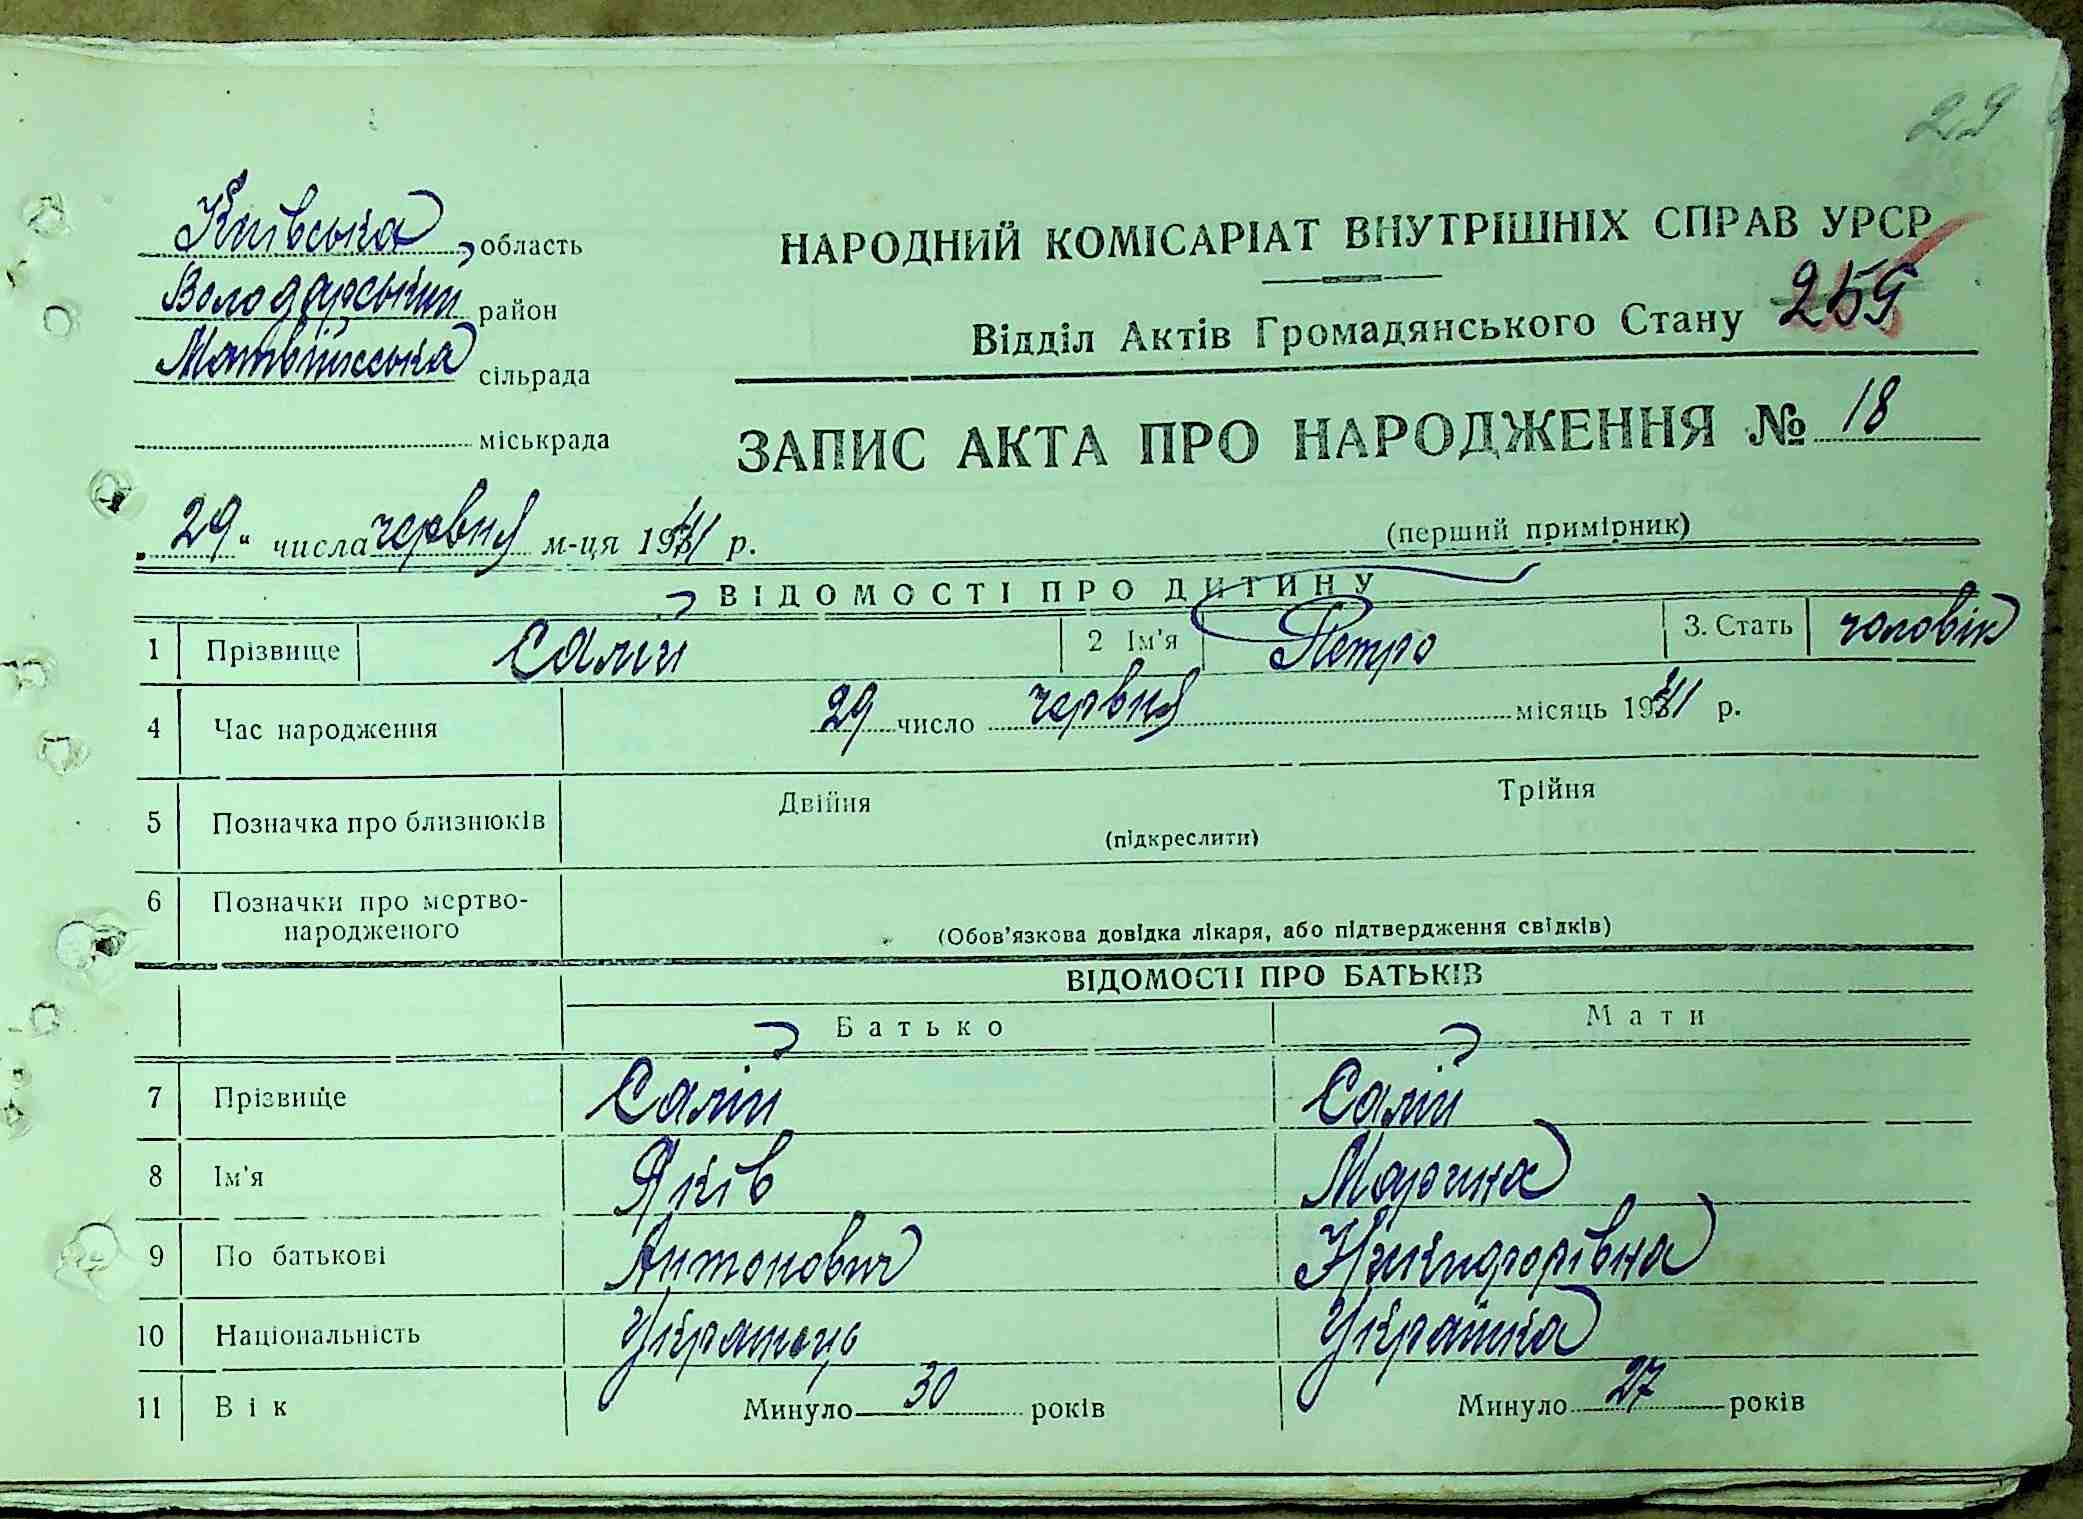 29
Київська область
Володарський район
Матвіїнська сільрада
міськрада
НАРОДНИЙ КОМІСАРІАТ ВНУТРІШНІХ СПРАВ УРСР
Відділ Актів Громадянського Стану 259
ЗАПИС АКТА ПРО НАРОДЖЕННЯ № 18
„29“ числа червня м-ця 1941 р.
(перший примірник)
ВІДОМОСТІ ПРО ДИТИНУ
1 Прізвище Салій 2 Ім'я Петро 3. Стать чоловік
4 Час народження 29 число червня місяць 1941 р.
5 Позначка про близнюків Двійня Трійня
(підкреслити)
6 Позначки про мертво-
народженого
(Обов'язкова довідка лікаря, або підтвердження свідків)
ВІДОМОСТІ ПРО БАТЬКІВ
Батько Мати
7 Прізвище Салій Салій
8 Ім'я Яків Марина
9 По батькові Антонович Никифорівна
10 Національність Українець Українка
11 Вік Минуло 30 років Минуло 27 років